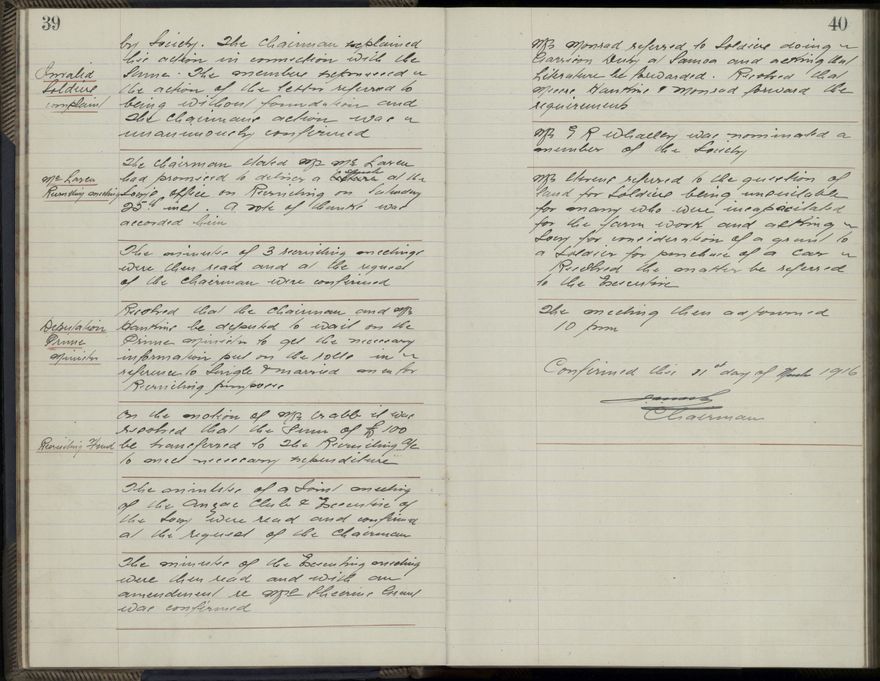 39
by Society. The Chairman explained
his action in connection with the
same. The members expressed
Invalid
Soldiers
complaint
the action of the letter referred to
being without foundation and
the Chairmans action was
unanimously confirmed
The Chairman stated Mr McLaren
McLaren
Recruiting meeting
had promised to deliver a at the
Socys office on Recruiting on Saturday
25th inst. A vote of thanks was
accorded him
The minutes of 3 recruiting meetings
were then read and at the request
of the Chairman were confirmed
Resolved that the Chairman and Mr
Deputation
Prime
Minister
Hankins be deputed to wait on the
Prime Minister to get the necessary
information put on the rolls in
reference to Single & married men for
Recruiting purposes
On the motion of Mr Crabb it was
resolved that the sum of £100
Recruiting Fund
be transferred to the Recruiting a/c
to meet necessary expenditure
The minutes of a Joint meeting
of the Anzac Club & Executive of
the Socy were read and confirmed
at the request of the Chairman
The minutes of the Executive meeting
were then read and with an
amendment re Mr
was confirmed
40
Mr Monrad referred to Soldiers doing
Garrison Duty at Samoa and asking that
Literature be forwarded. Resolved that
Messrs Hankins & Monrad forward the
requirements
Mr E R Whalley was nominated a
member of the Society
Mr referred to the question of
land for Soldiers being unsuitable
for many who were incapacitated
for the farm work and asking
Socy for consideration of a grant to
a Soldier for purchase of a car
Resolved the matter be referred
to the Executive
The meeting then adjourned
10 pm
Confirmed this 21st day of March 1916
Chairman